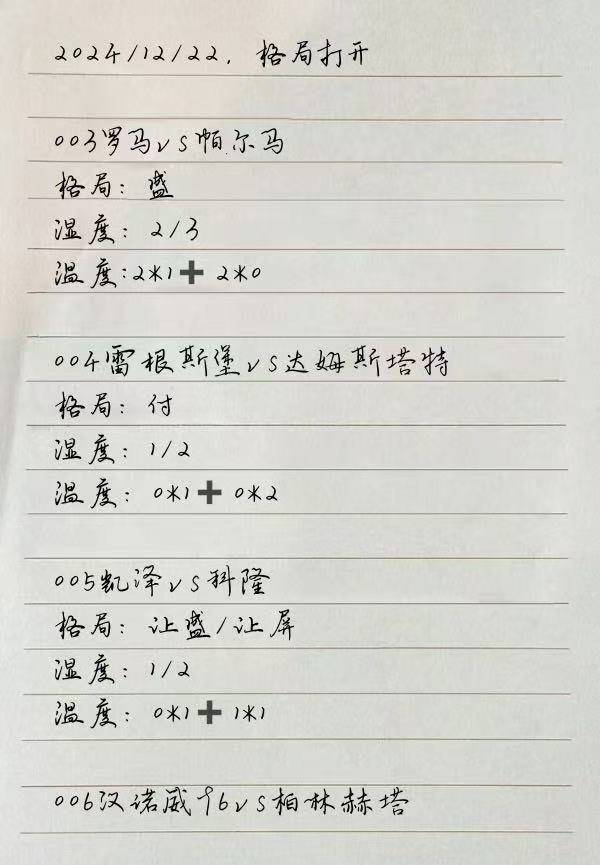 2024/12/22，格局打开
003罗马vs帕尔马
格局：盛
湿度：2/3
温度：2*1➕ 2*0
004雷根斯堡vs达姆斯塔特
格局：付
湿度：1/2
温度：0*1➕ 0*2
005凯泽vs科隆
格局：让盛/让屏
湿度：1/2
温度：0*1➕ 1*1
006汉诺威96vs柏林赫塔